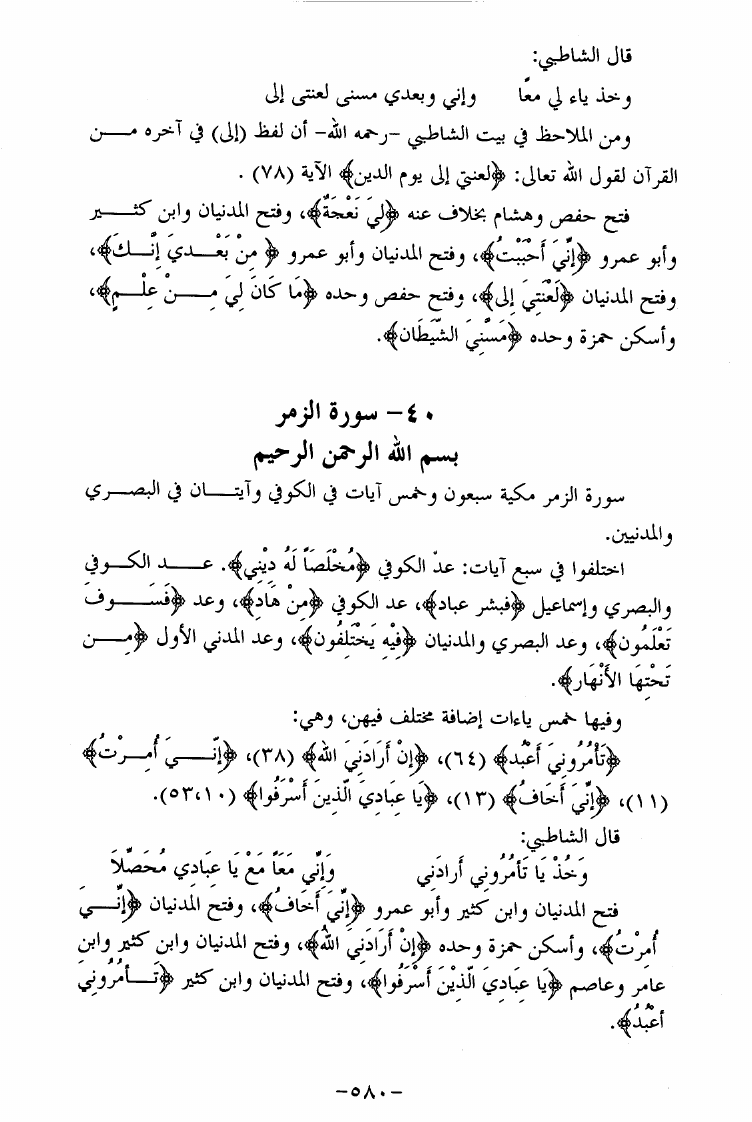 قال الشاطبي:
وخذ ياء لي معًا وإني وبعدي مسنى لعنتى إلى
ومن الملاحظ في بيت الشاطبي -رحمه الله- أن لفظ (إلى) في آخره مـــن
القرآن لقول الله تعالى: ﴿لعنتي إلى يوم الدين﴾ الآية (٧٨) .
فتح حفص وهشام بخلاف عنه ﴿لِيَ نَعْجَةٌ﴾، وفتح المدنيان وابن كثــــير
وأبو عمرو ﴿إِنِّيَ أَحْبَبْتُ﴾، وفتح المدنيان وأبو عمرو ﴿ مِنْ بَعْــدِيَ إِنَّــكَ﴾،
وفتح المدنيان ﴿لَعْنَتِيَ إِلى﴾، وفتح حفص وحده ﴿مَا كَانَ لِيَ مِـــنْ عِلْــمٍ﴾،
وأسكن حمزة وحده ﴿مَسَّنِيَ الشَّيْطَان﴾.
٤٠- سورة الزمر
بسم الله الرحمن الرحيم
سورة الزمر مكية سبعون وخمس آيات في الكوفي وآيتـــان في البصــري
والمدنيين.
اختلفوا في سبع آيات: عدّ الكوفي ﴿مُخْلَصَاً لَهُ دِيْنِي﴾. عـــد الكــوفي
والبصري وإسماعيل ﴿فبشر عباد﴾، عد الكوفي ﴿مِنْ هَادٍ﴾، وعد ﴿فَسَـــوفَ
تَعْلَمُون﴾، وعد البصري والمدنيان ﴿فِيْهِ يَخْتَلِفُون﴾، وعد المدني الأول ﴿مِـــن
تَحْتِهَا الأَنْهَار﴾.
وفيها خمس ياءات إضافة مختلف فيهن، وهي:
﴿تَأْمُرُونِيَ أَعْبُد﴾ (٦٤)، ﴿إِنْ أَرَادَنِيَ الله﴾ (٣٨)، ﴿إِنِّـــيَ أُمِــرْتُ﴾
(١١)، ﴿إِنِّيَ أَخَافُ﴾ (١٣)، ﴿يَا عِبَادِيَ الَّذِينَ أَسْرَفُوا﴾ (٥٣،١٠).
قال الشاطبي:
وَخُذْ يَا تَأْمُرُونِي أَرادَنِي وَإِنِّي مَعَاً مَعْ يَا عِبَادِي مُحَصِّلاَ
فتح المدنيان وابن كثير وأبو عمرو ﴿إِنِّيَ أَخَافُ﴾، وفتح المدنيان ﴿إِنِّـــيَ
أُمِرْتُ﴾، وأسكن حمزة وحده ﴿إِنْ أَرَادَنِيَ اللهُ﴾، وفتح المدنيان وابن كثير وابن
عامر وعاصم ﴿يَا عِبَادِيَ الَّذِيْنَ أَسْرَفُوا﴾، وفتح المدنيان وابن كثير ﴿تَـــأمُرُونِيَ
أَعْبُدُ﴾.
-٥٨٠-